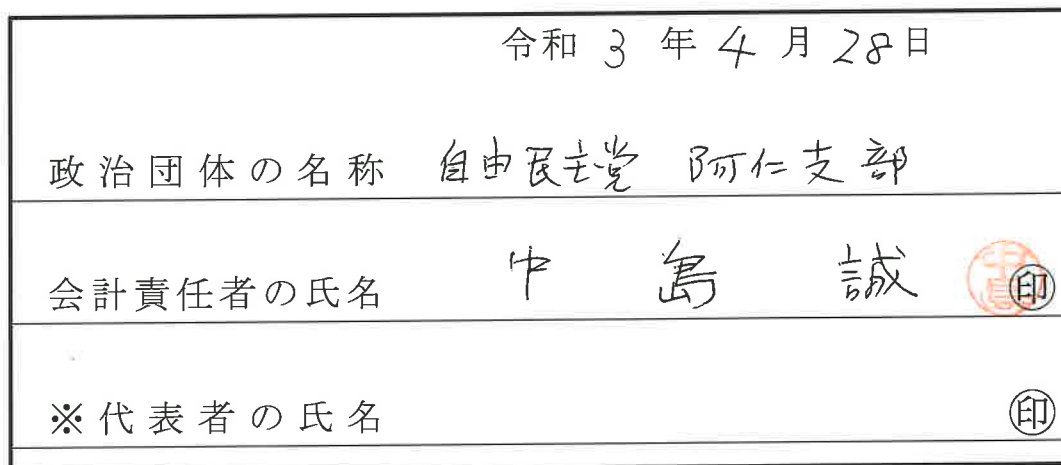 令和 3 年 4 月 28日
政治団体の名称 自由民主党 阿仁支部
会計責任者の氏名 中島 誠 中島 ㊞
※代表者の氏名 ㊞